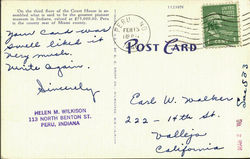 On the third floor of the Court House is as-
sembled what is said to be the greatest pioneer
museum in Indiana, valued at $75,000.00. Peru
is the county seat of Miami county.
POST CARD
PERU
FEB 15
Your Card was
swell liked it
Very much.
Write again.
Sincerely
HELEN M. WILKISON
113 NORTH BENTON ST.
PERU, INDIANA
Carl W. Walker
222-14th St.
Vallejo
California